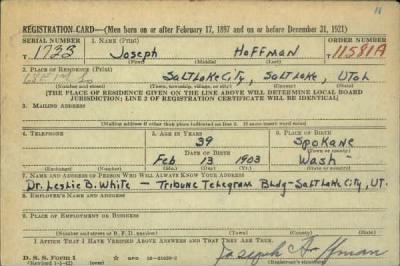 REGISTRATION CARD—(Men born on or after February 17, 1897 and on or before December 31, 1921)
SERIAL NUMBER 1. NAME (Print) ORDER NUMBER
T 1733 Joseph Hoffman 11581A
(First) (Middle) (Last)
2. PLACE OF RESIDENCE (Print)
Salt Lake City, Salt Lake, Utah
(Number and street) (Town, township, village, or city) (County) (State)
[THE PLACE OF RESIDENCE GIVEN ON THE LINE ABOVE WILL DETERMINE LOCAL BOARD
JURISDICTION; LINE 2 OF REGISTRATION CERTIFICATE WILL BE IDENTICAL]
3. MAILING ADDRESS
[Mailing address if other than place indicated on line 2. If same insert word same]
4. TELEPHONE 5. AGE IN YEARS 6. PLACE OF BIRTH
39 Spokane
DATE OF BIRTH (Town or county)
Feb 13 1903 Wash
(Exchange) (Number) (Mo.) (Day) (Yr.) (State or country)
7. NAME AND ADDRESS OF PERSON WHO WILL ALWAYS KNOW YOUR ADDRESS
Dr. Leslie B. White — Tribune Telegram Bldg - Salt Lake City, UT.
8. EMPLOYER'S NAME AND ADDRESS
9. PLACE OF EMPLOYMENT OR BUSINESS
(Number and street or R. F. D. number) (Town) (County) (State)
I AFFIRM THAT I HAVE VERIFIED ABOVE ANSWERS AND THAT THEY ARE TRUE.
D. S. S. Form 1
(Revised 1-1-42) (over) Joseph Hoffman
(Registrant's signature)